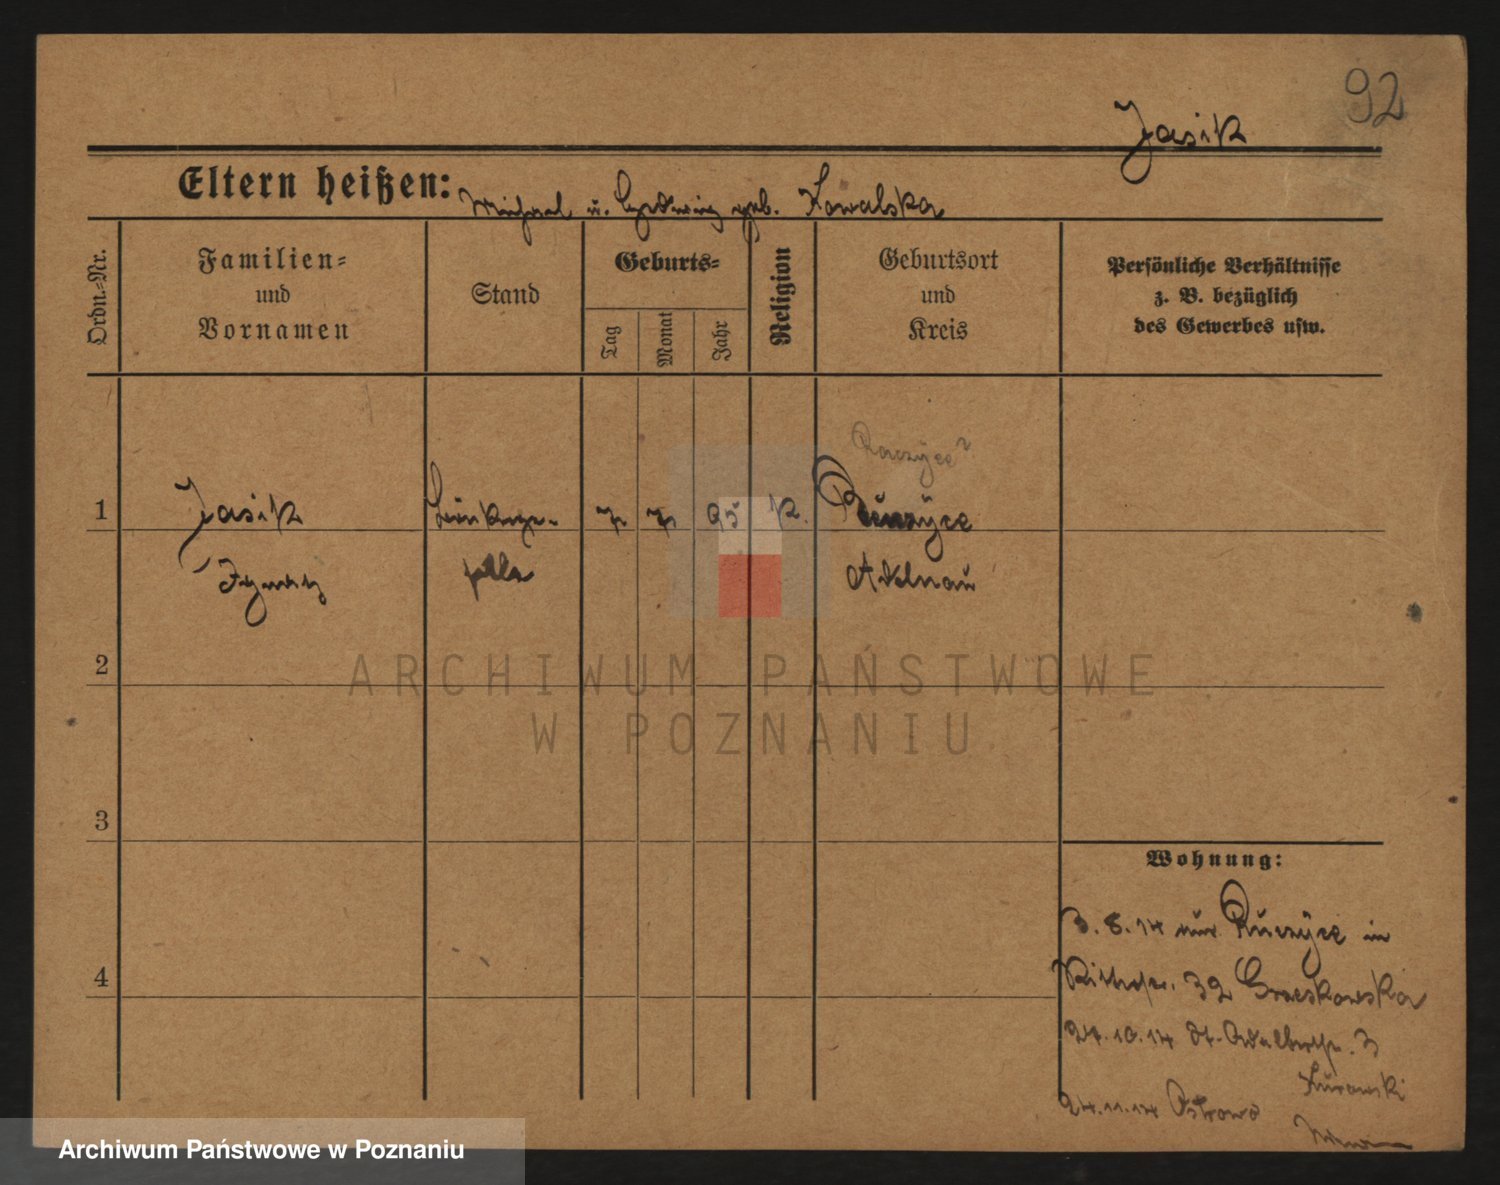 92
Jasik
Eltern heißen: Michael u. Hedwig geb. Kowalska
Ordn.-Nr.
Familien-
und
Vornamen
Stand
Geburts-
Tag
Monat
Jahr
Religion
Geburtsort
und
Kreis
Persönliche Verhältnisse
z. B. bezüglich
des Gewerbes usw.
Raczyce?
1 Jasik 7. 7. 95 k.
Ignatz
Adelnau
2
ARCHIWUM PAŃSTWOWE
W POZNANIU
3
Wohnung:
4
3. 8. 14 aus in
Ritterstr. 32
24.10.14 St. Adalbertstr. 3
Zurawski
24.11.14 Ostrowo
Archiwum Państwowe w Poznaniu